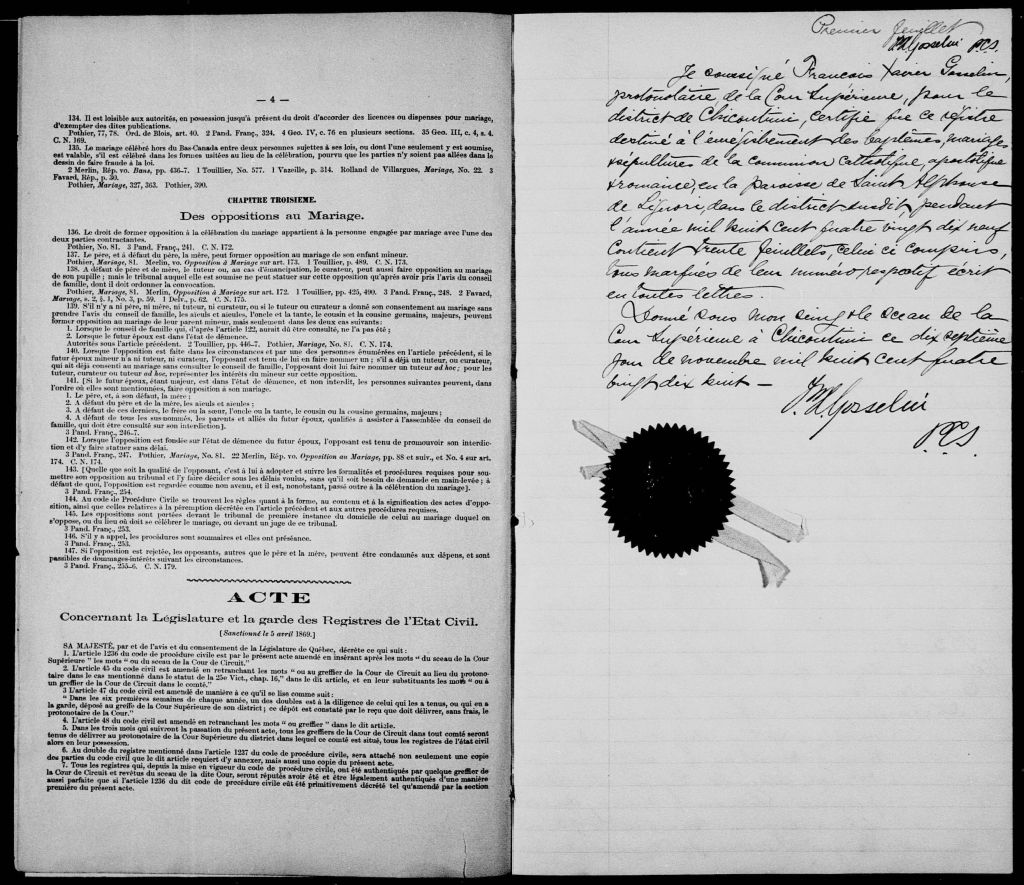 — 4 —
134. Il est loisible aux autorités, en possession jusqu'à présent du droit d'accorder des licences ou dispenses pour mariage,
d'exempter des dites publications.
Pothier, 77, 78. Ord. de Blois, art. 40. 2 Pand. Franç., 324. 4 Geo. IV, c. 76 en plusieurs sections. 35 Geo. III, c. 4, s. 4.
C. N. 169.
135. Le mariage célébré hors du Bas-Canada entre deux personnes sujettes à ses lois, ou dont l'une seulement y est soumise,
est valable, s'il est célébré dans les formes usitées au lieu de la célébration, pourvu que les parties n'y soient pas allées dans le
dessin de faire fraude à la loi.
2 Merlin, Rép. vo. Bans, pp. 436-7. 1 Touillier, No. 577. 1 Vazeille, p. 314. Rolland de Villargues, Mariage, No. 22. 3
Favard, Rép., p. 39.
Pothier, Mariage, 327, 363. Pothier, 390.
CHAPITRE TROISIEME.
Des oppositions au Mariage.
136. Le droit de former opposition à la célébration du mariage appartient à la personne engagée par mariage avec l'une des
deux parties contractantes.
Pothier, No. 81. 3 Pand. Franç., 241. C. N. 172.
137. Le père, et à défaut du père, la mère, peut former opposition au mariage de son enfant mineur.
Pothier, Mariage, 81. Merlin, vo. Opposition à Mariage sur art. 173. 1 Touillier, p. 489. C. N. 173.
138. A défaut de père et de mère, le tuteur ou, au cas d'émancipation, le curateur, peut aussi faire opposition au mariage
de son pupille; mais le tribunal auquel elle est soumise ne peut statuer sur cette opposition qu'après avoir pris l'avis du conseil
de famille, dont il doit ordonner la convocation.
Pothier, Mariage, 81. Merlin, Opposition à Mariage sur art. 172. 1 Touillier, pp. 425, 490. 3 Pand. Franç., 248. 2 Favard,
Mariage, s. 2, §. 1, No. 3, p. 59. 1 Delv., p. 62. C. N. 175.
139. S'il n'y a ni père, ni mère, ni tuteur, ni curateur, ou si le tuteur ou curateur a donné son consentement au mariage sans
prendre l'avis du conseil de famille, les aïeuls et aïeules, l'oncle et la tante, le cousin et la cousine germains, majeurs, peuvent
former opposition au mariage de leur parent mineur, mais seulement dans les deux cas suivants:
1. Lorsque le conseil de famille qui, d'après l'article 122, aurait dû être consulté, ne l'a pas été;
2. Lorsque le futur époux est dans l'état de démence.
Autorités sous l'article précédent. 2 Touillier, pp. 446-7. Pothier, Mariage, No. 81. C. N. 174.
140. Lorsque l'opposition est faite dans les circonstances et par une des personnes énumérées en l'article précédent, si le
futur époux mineur n'a ni tuteur, ni curateur, l'opposant est tenu de lui en faire nommer un; s'il a déjà un tuteur, ou curateur,
qui ait déjà consenti au mariage sans consulter le conseil de famille, l'opposant doit lui faire nommer un tuteur ad hoc; pour les
tuteur, curateur ou tuteur ad hoc, représenter les intérêts du mineur sur cette opposition.
141. [Si le futur époux, étant majeur, est dans l'état de démence, et non interdit, les personnes suivantes peuvent, dans
l'ordre où elles sont mentionnées, faire opposition à son mariage.
1. Le père, et, à son défaut, la mère;
2. A défaut du père et de la mère, les aïeuls et aïeules;
3. A défaut de ces derniers, le frère ou la sœur, l'oncle ou la tante, le cousin ou la cousine germains, majeurs;
4. A défaut de tous les sus-nommés, les parents et alliés du futur époux, qualifiés à assister à l'assemblée du conseil de
famille, qui doit être consulté sur son interdiction].
3 Pand. Franç., 246-7.
142. Lorsque l'opposition est fondée sur l'état de démence du futur époux, l'opposant est tenu de promouvoir son interdic-
tion et d'y faire statuer sans délai.
3 Pand. Franç., 247. Pothier, Mariage, No. 81. 22 Merlin, Rép. vo. Opposition au Mariage, pp. 88 et suiv., et No. 4 sur art.
174. C. N. 174.
143. [Quelque soit la qualité de l'opposant, c'est à lui à adopter et suivre les formalités et procédures requises pour sou-
mettre son opposition au tribunal et l'y faire décider sous les délais voulus, sans qu'il soit besoin de demande en main-levée; à
défaut de quoi, l'opposition est regardée comme non avenu, et il est, nonobstant, passé outre à la célébration du mariage].
3 Pand. Franç., 254.
144. Au code de Procédure Civile se trouvent les règles quant à la forme, au contenu et à la signification des actes d'oppo-
sition, ainsi que celles relatives à la péremption décrétée en l'article précédent et aux autres procédures requises.
145. Les oppositions sont portées devant le tribunal de première instance du domicile de celui au mariage duquel on
s'oppose, ou du lieu où doit se célébrer le mariage, ou devant un juge de ce tribunal.
3 Pand. Franç., 253.
146. S'il y a appel, les procédures sont sommaires et elles ont préséance.
3 Pand. Franç., 253.
147. Si l'opposition est rejetée, les opposants, autres que le père et la mère, peuvent être condamnés aux dépens, et sont
passibles de dommages-intérêts suivant les circonstances.
3 Pand. Franç., 255-6. C. N. 179.
ACTE
Concernant la Législature et la garde des Registres de l'Etat Civil.
[Sanctionné le 5 avril 1869.]
SA MAJESTÉ, par et de l'avis et du consentement de la Législature de Québec, décrète ce qui suit:
1. L'article 1236 du code de procédure civile est par le présent acte amendé en insérant après les mots "du sceau de la Cour
Supérieure" les mots "ou du sceau de la Cour de Circuit."
2. L'article 45 du code civil est amendé en retranchant les mots "ou au greffier de la Cour de Circuit au lieu du protono-
taire dans le cas mentionné dans le statut de la 25e Vict., chap. 16," dans le dit article, et en leur substituants les mots "ou à
un greffier de la Cour de Circuit dans le comté."
3 L'article 47 du code civil est amendé de manière à ce qu'il se lise comme suit:
"Dans les six premières semaines de chaque année, un des doubles est à la diligence de celui qui les a tenus, ou qui en a
la garde, déposé au greffe de la Cour Supérieure de son district; ce dépôt est constaté par le reçu que doit délivrer, sans frais, le
protonotaire de la Cour."
4. L'article 48 du code civil est amendé en retranchant les mots "ou greffier" dans le dit article.
5. Dans les trois mois qui suivront la passation du présent acte, tous les greffiers de la Cour de Circuit dans tout comté seront
tenus de délivrer au protonotaire de la Cour Supérieure du district dans lequel ce comté est situé, tous les registres de l'état civil
alors en leur possession.
6. Au double du registre mentionné dans l'article 1237 du code de procédure civile, sera attaché non seulement une copie
des parties du code civil que le dit article requiert d'y annexer, mais aussi une copie du présent acte.
7. Tous les registres qui, depuis la mise en vigueur du code de procédure civile, ont été authentiqués par quelque greffier de
la Cour de Circuit et revêtus du sceau de la dite Cour, seront réputés avoir été et être légalement authentiqués d'une manière
aussi parfaite que si l'article 1236 du dit code de procédure civile eût été primitivement décrété tel qu'amendé par la section
première du présent acte.
Premier feuillet
FX Gosselin P.C.S.
Je soussigné François Xavier Gosselin,
protonotaire de la Cour Supérieure, pour le
district de Chicoutimi, certifie que ce régistre
destiné à l'enrégistrement des baptêmes, mariages
& sépultures de la communion catholique, apostolique
& romaine, en la paroisse de Saint Alphonse
de Liguori, dans le district susdit, pendant
l'année mil huit cent quatre vingt dix neuf
contient trente feuillets, celui ci compris,
tous marqués de leur numéro respectif écrit
en toutes lettres.
Donné sous mon seing & le sceau de la
Cour Supérieure à Chicoutimi ce dix septième
jour de novembre mil huit cent quatre
vingt dix huit —
F. X. Gosselin
P.C.S.